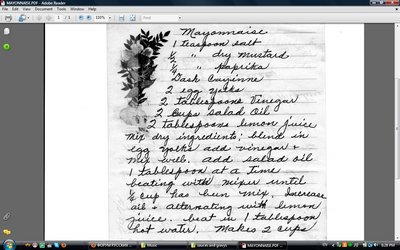 MAYONNAISE.PDF - Adobe Reader
File Edit View Document Tools Window Help
1 / 1 120% Find
Mayonnaise
1 teaspoon salt
1/2 " dry mustard
1/4 " paprika
Dash Cayinne
2 egg yolks
2 tablespoons Vinegar
2 Cups Salad Oil
2 tablespoons lemon juice
mix dry ingredients; blend in
egg yolks add vinegar +
mix well. add salad oil
1 tablespoon at a time
beating with mixer until
1/2 cup has bun mix. Increase
oil + alternating with lemon
juice. beat in 1 tablespoon
hot water. Makes 2 cups
Music
sauces and gravys
MAYONNAISE.PDF - ...
5:28 PM